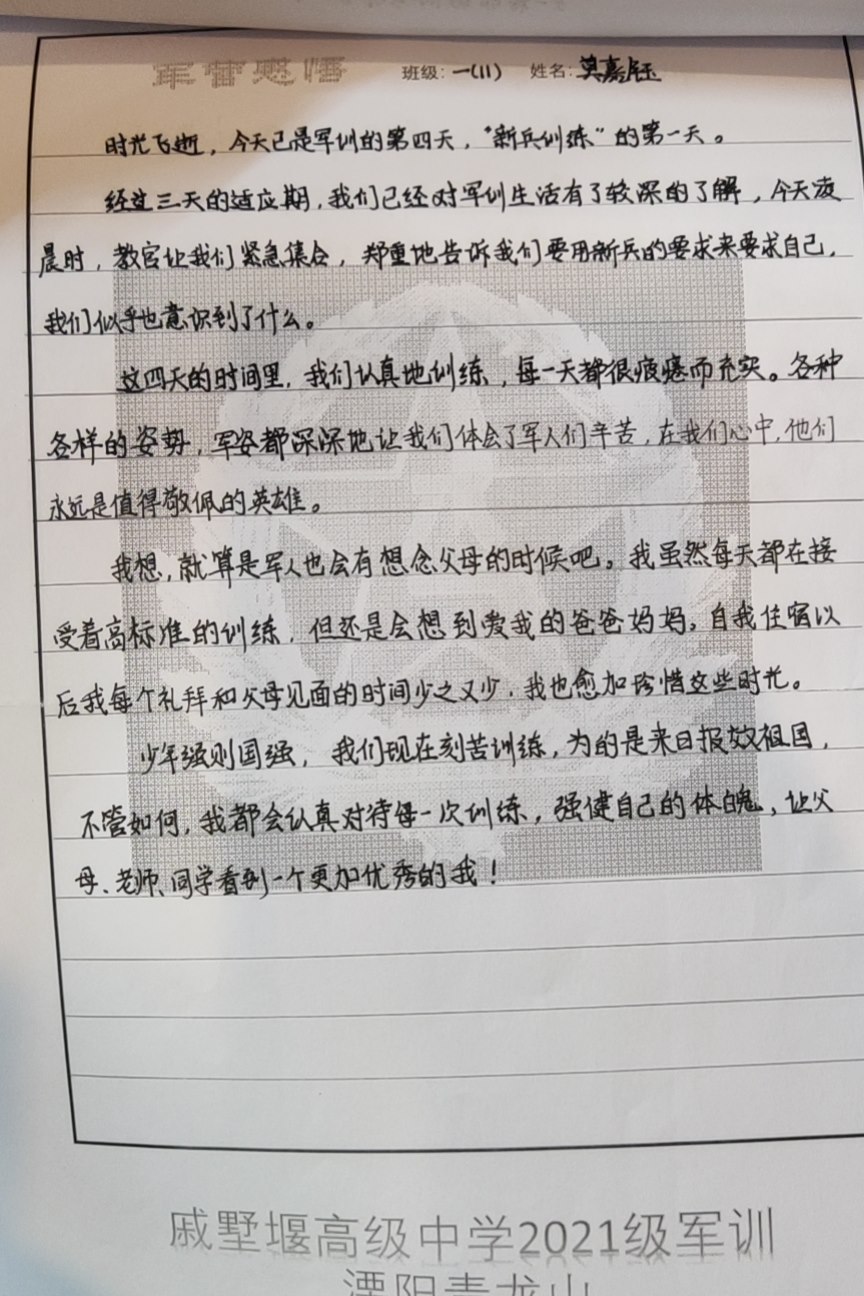 军营感悟 班级：一(11) 姓名：莫嘉钰
时光飞逝，今天已是军训的第四天，“新兵训练”的第一天。
经过三天的适应期，我们已经对军训生活有了较深的了解，今天凌
晨时，教官让我们紧急集合，郑重地告诉我们要用新兵的要求来要求自己，
我们似乎也意识到了什么。
这四天的时间里，我们认真地训练，每一天都很疲惫而充实。各种
各样的姿势，军姿都深深地让我们体会了军人们辛苦，在我们心中，他们
永远是值得敬佩的英雄。
我想，就算是军人也会有想念父母的时候吧。我虽然每天都在接
受着高标准的训练，但还是会想到爱我的爸爸妈妈。自我住宿以
后我每个礼拜和父母见面的时间少之又少，我也愈加珍惜这些时光。
少年强则国强，我们现在刻苦训练，为的是来日报效祖国，
不管如何，我都会认真对待每一次训练，强健自己的体魄，让父
母、老师、同学看到一个更加优秀的我！
戚墅堰高级中学2021级军训
溧阳青龙山